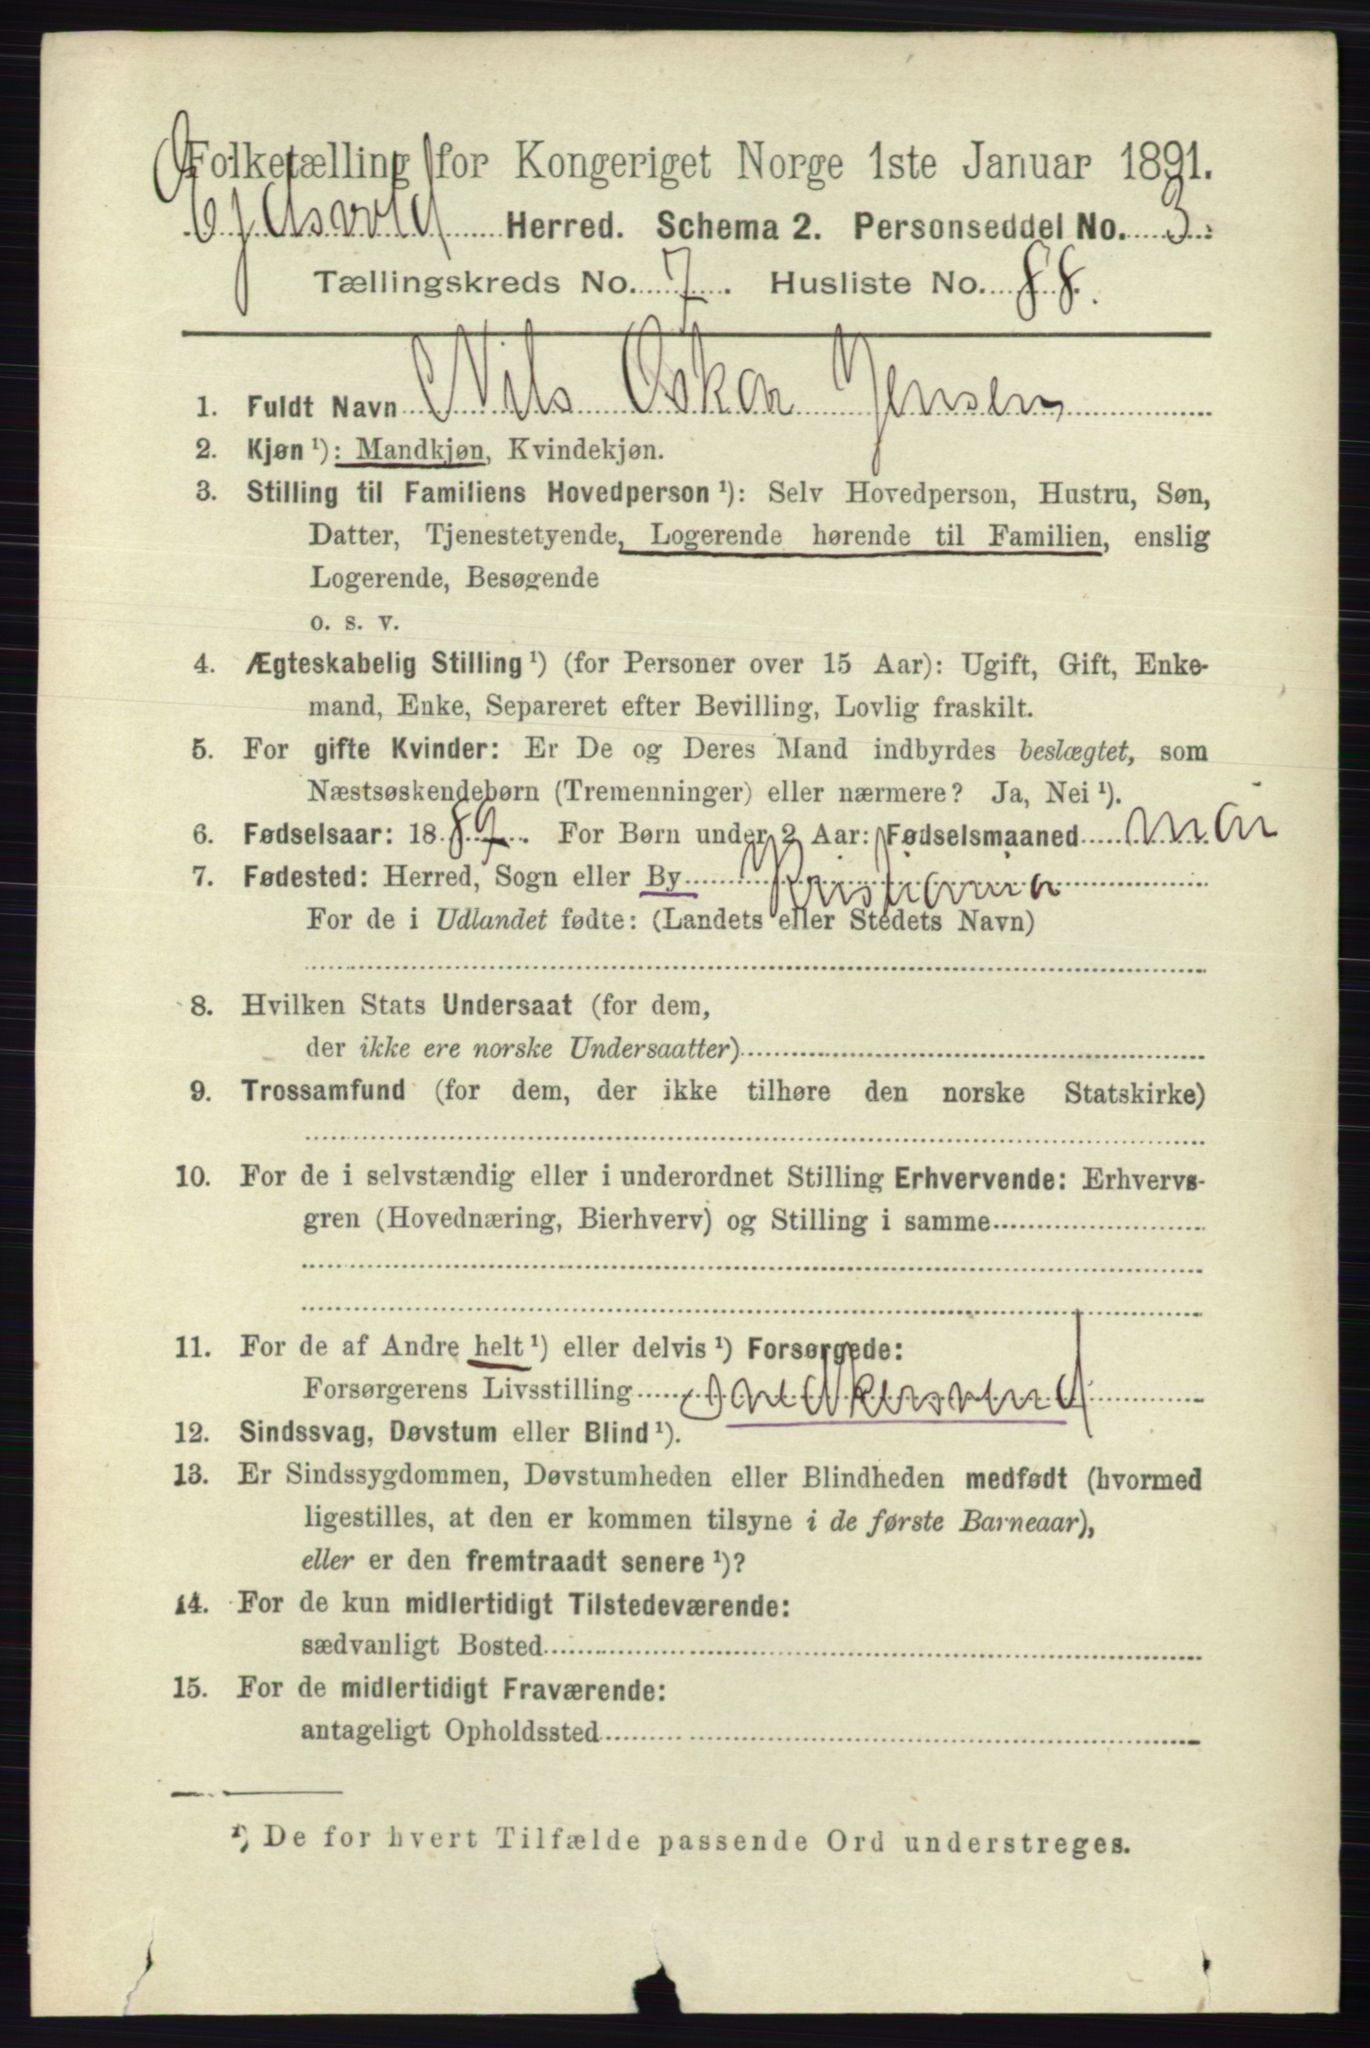 Folketælling for Kongeriget Norge 1ste Januar 1891.
Herred. Schema 2. Personseddel No. 3.
Tællingskreds No. 7. Husliste No. 88.
1. Fuldt Navn Nils Oskar Jensen
2. Kjøn ¹): Mandkjøn, Kvindekjøn.
3. Stilling til Familiens Hovedperson ¹): Selv Hovedperson, Hustru, Søn,
Datter, Tjenestetyende, Logerende hørende til Familien, enslig
Logerende, Besøgende
o. s. v.
4. Ægteskabelig Stilling ¹) (for Personer over 15 Aar): Ugift, Gift, Enke-
mand, Enke, Separeret efter Bevilling, Lovlig fraskilt.
5. For gifte Kvinder: Er De og Deres Mand indbyrdes beslægtet, som
Næstsøskendebørn (Tremenninger) eller nærmere? Ja, Nei ¹).
6. Fødselsaar: 1889. For Børn under 2 Aar: Fødselsmaaned mai
7. Fødested: Herred, Sogn eller By Kristiania
For de i Udlandet fødte: (Landets eller Stedets Navn)
8. Hvilken Stats Undersaat (for dem,
der ikke ere norske Undersaatter)
9. Trossamfund (for dem, der ikke tilhøre den norske Statskirke)
10. For de i selvstændig eller i underordnet Stilling Erhvervende: Erhvervs-
gren (Hovednæring, Bierhverv) og Stilling i samme
11. For de af Andre helt ¹) eller delvis ¹) Forsørgede:
Forsørgerens Livsstilling
12. Sindssvag, Døvstum eller Blind ¹).
13. Er Sindssygdommen, Døvstumheden eller Blindheden medfødt (hvormed
ligestilles, at den er kommen tilsyne i de første Barneaar),
eller er den fremtraadt senere ¹)?
14. For de kun midlertidigt Tilstedeværende:
sædvanligt Bosted
15. For de midlertidigt Fraværende:
antageligt Opholdssted
¹) De for hvert Tilfælde passende Ord understreges.